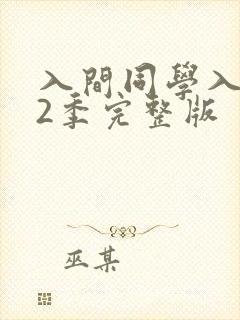 入間同學入
2季完整版
巫某